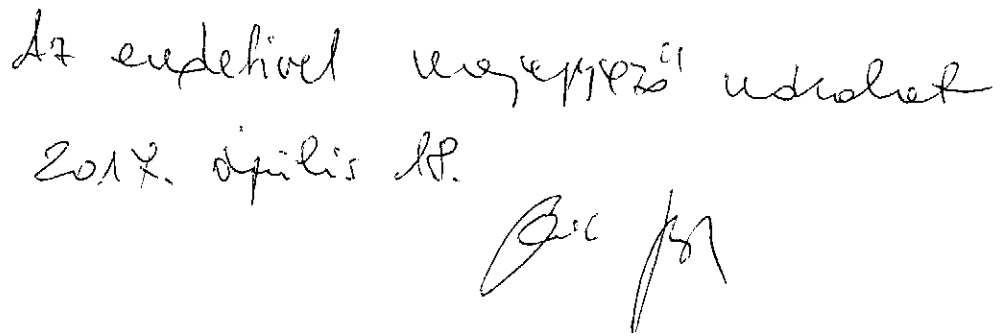 Az eredetivel megegyező másolat
2017. április 18.